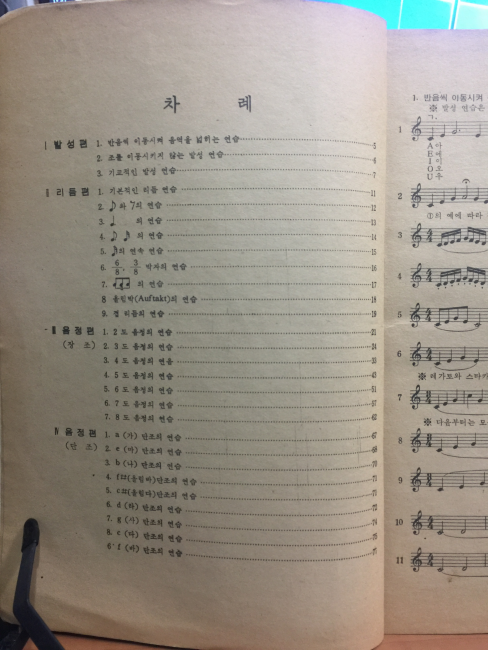 차 례
Ⅰ 발성편 1. 반음씩 이동시켜 음역을 넓히는 연습 5
2. 조를 이동시키지 않는 발성 연습 6
3. 기교적인 발성 연습 7
Ⅱ 리듬편 1. 기본적인 리듬 연습 11
2. ♪와 의 연습 12
3. ♩ 의 연습 13
4. ♪ ♪ 의 연습 14
5. 의 연속 연습 15
6. 6/8, 3/8 박자의 연습 16
7. 의 연습 17
8 올림박(Auftakt)의 연습 18
9. 겹 리듬의 연습 19
Ⅲ 음정편 1. 2 도 음정의 연습 21
(장 조) 2. 3 도 음정의 연습 24
3. 4 도 음정의 연습
4. 5 도 음정의 연습 43
5. 6 도 음정의 연습 51
6. 7 도 음정의 연습 57
7. 8 도 음정의 연습 62
Ⅳ 음정편 1. a (가) 단조의 연습 67
(단 조) 2. e (마) 단조의 연습 69
3. b (나) 단조의 연습 70
4. f♯(올림바)단조의 연습 71
5. c♯(올림다)단조의 연습
6. d (라) 단조의 연습
7. g (사) 단조의 연습 74
8. c (다) 단조의 연습 75
f (바) 단조의 연습
1. 반음씩 이동시켜
※ 발성 연습은
ㄱ,
1
A 아
E 에
I 이
O 오
U 우
2
①의 예에 따라
3
4
5
6
※ 레가토와 스타카
7
※ 다음부터는 모
8
9
10
11